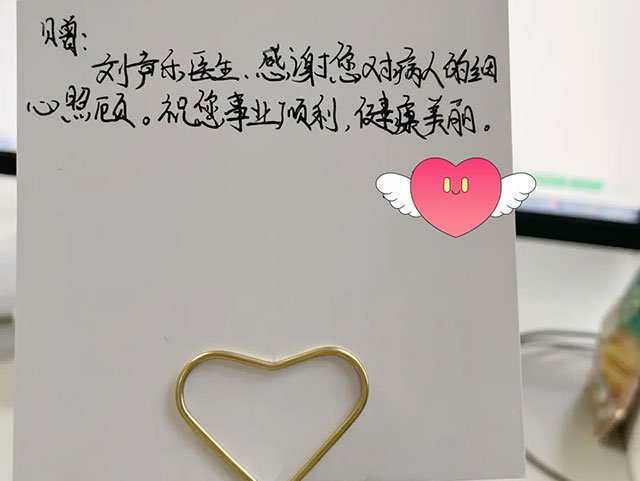 赠:
刘声乐医生、感谢您对病人的细
心照顾。祝您事业顺利,健康美丽。